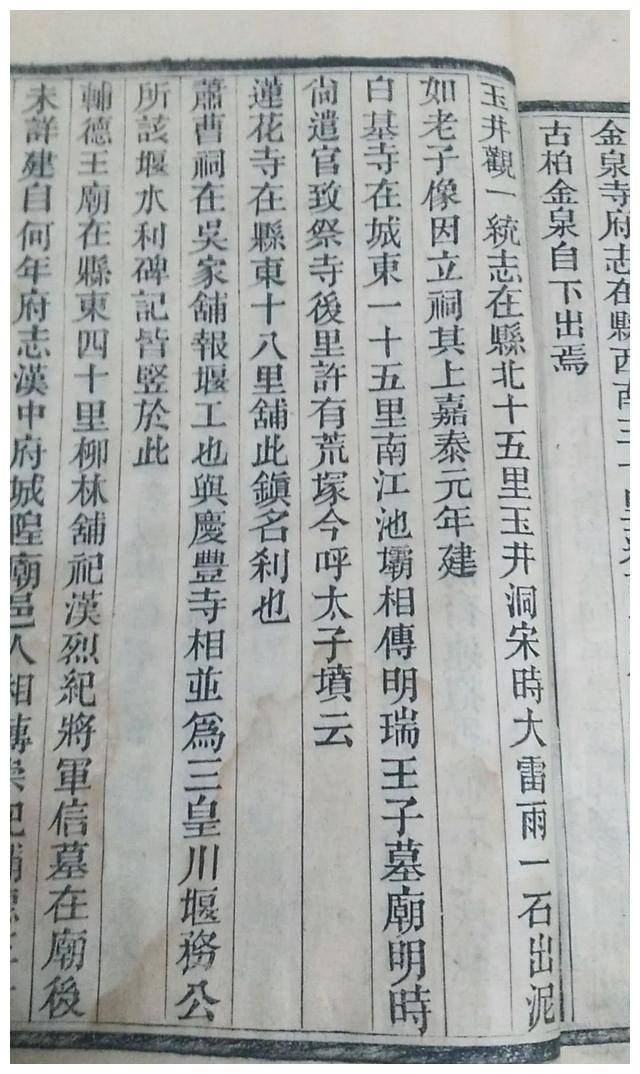 金泉寺府志在縣西南三十里
古柏金泉自下出焉
玉井觀一統志在縣北十五里玉井洞宋時大雷雨一石出泥
如老子像因立祠其上嘉泰元年建
白墓寺在城東一十五里南江池壩相傳明瑞王子墓廟明時
尙遣官致祭寺後里許有荒塚今呼太子墳云
蓮花寺在縣東十八里舖此鎭名刹也
蕭曹祠在吳家舖報堰工也與慶豐寺相並爲三皇川堰務公
所該堰水利碑記皆竪於此
輔德王廟在縣東四十里柳林舖祀漢烈紀將軍信墓在廟後
未詳建自何年府志漢中府城隍廟邑人相傳崇祀輔德王